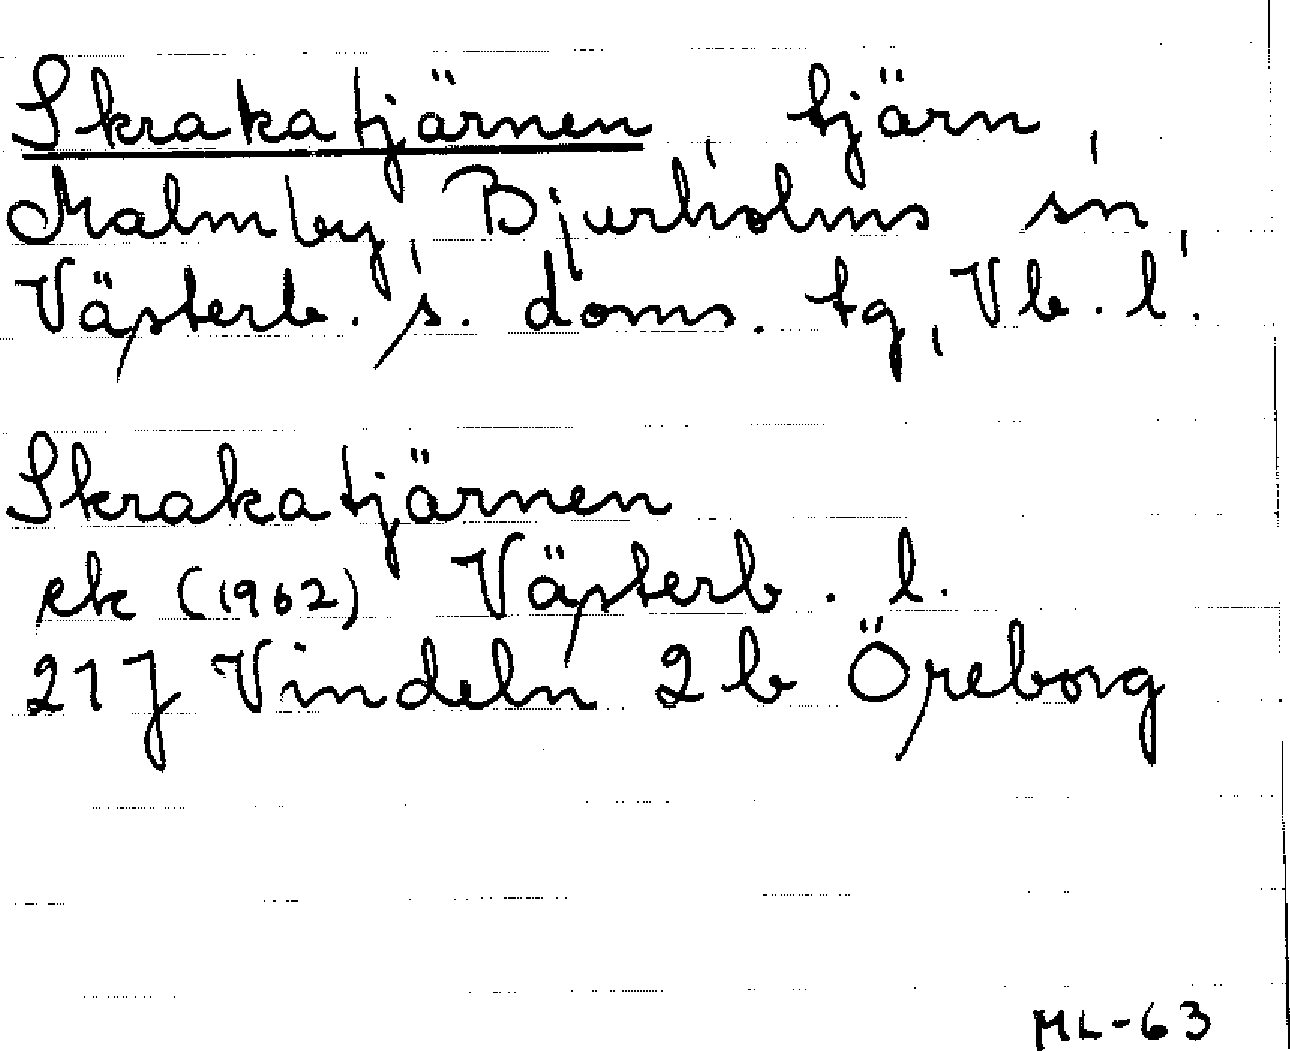 Skrakatjärnen, tjärn,
Malmby, Bjurholms sn,
Västerb. s. doms. tg, Vb. l.
Skrakatjärnen
ek (1962) Västerb. l.
21 J Vindeln 2 b Öreborg
ML-63